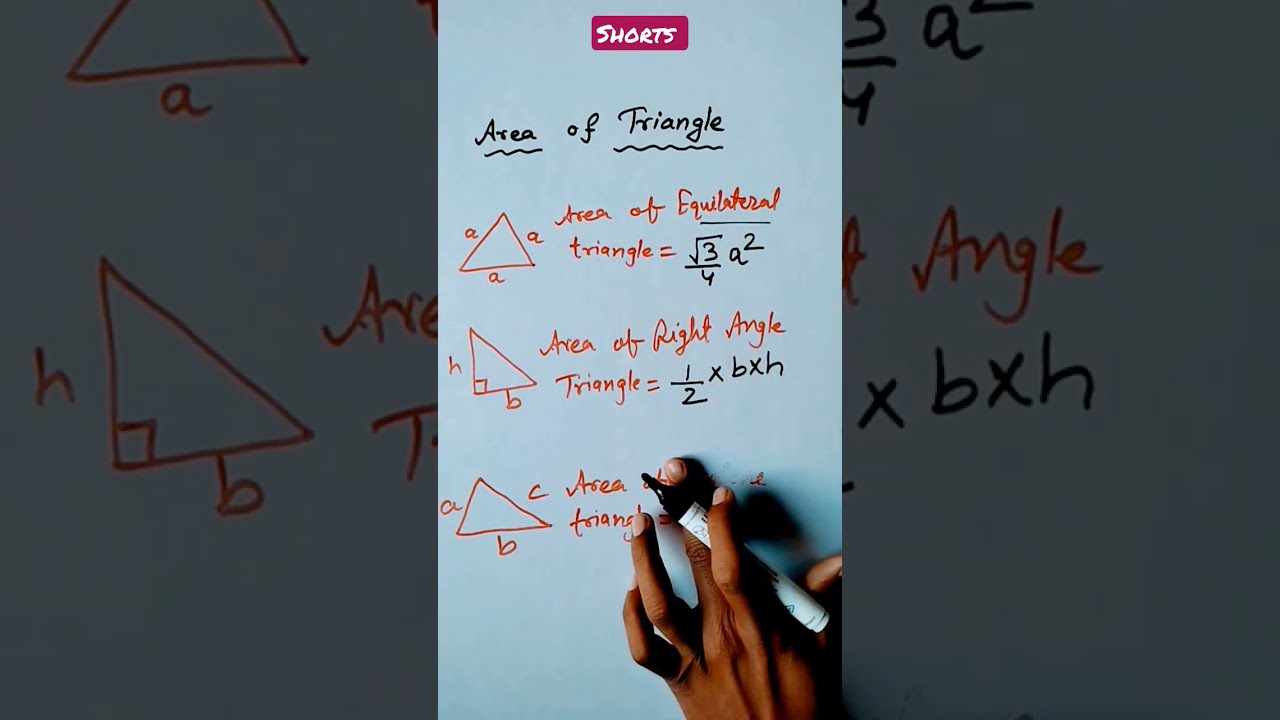 SHORTS
Area of Triangle
a
a
a
Area of Equilateral
triangle = √3/4 a²
h
b
Area of Right Angle
Triangle = 1/2 × b × h
a
c
b
Area of
triangle =
a
3/4 a²
h
b
Angle
× b × h